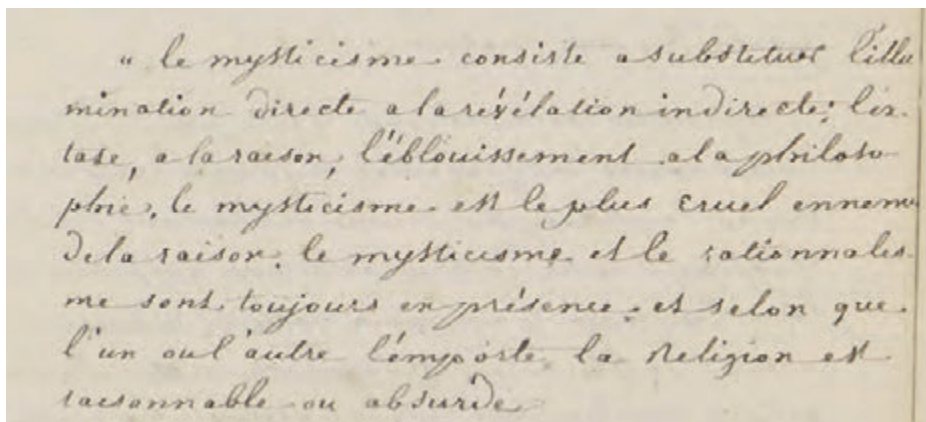 " le mysticisme consiste a substituer l'illu
mination directe a la révélation indirecte; l'ex-
tase, a la raison, l'éblouissement a la philoso
phie, le mysticisme est le plus cruel ennemi
de la raison. le mysticisme et le rationnalis
me sont toujours en présence et selon que
l'un ou l'autre l'émporte la Religion est
raisonnable ou absurde